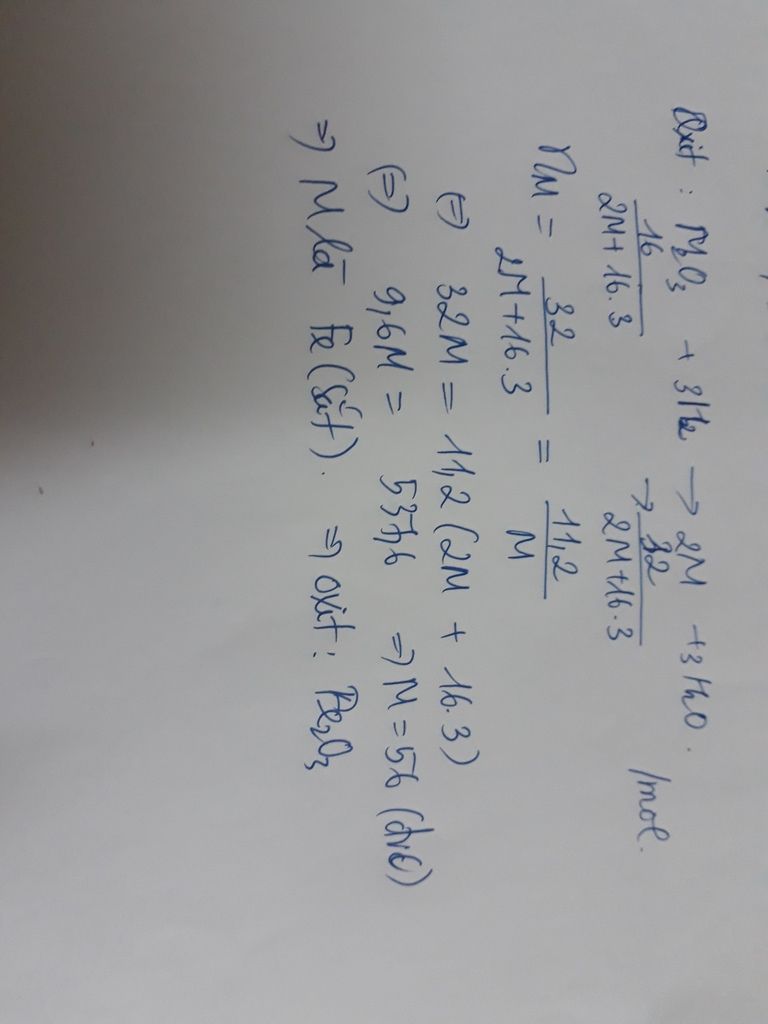 Oxit : M2O3 + 3H2 → 2M + 3H2O.
16/(2M+16.3) → 32/(2M+16.3) /mol.
nM = 32/(2M+16.3) = 11,2/M
(=) 32M = 11,2(2M + 16.3)
(=) 9,6M = 537,6 => M = 56 (đvC)
=> M là Fe (Sắt). => oxit : Fe2O3